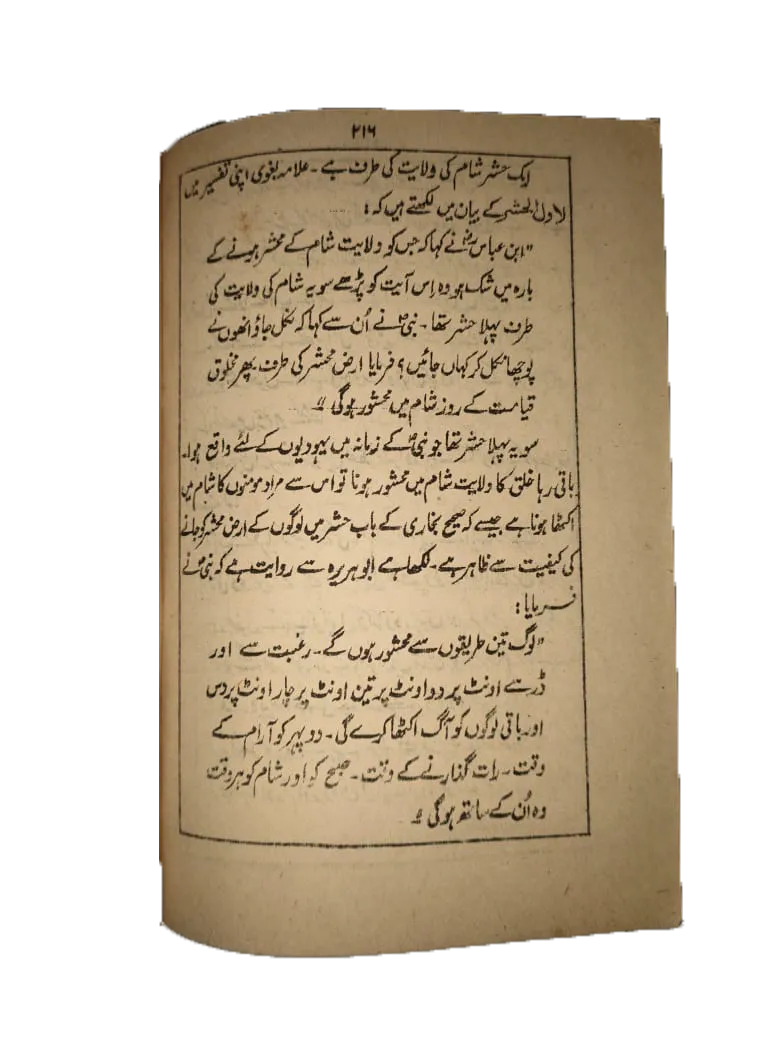 ۲۱۶
ایک حشر شام کی ولایت کی طرف ہے ۔ علامہ بغوی اپنی تفسیر میں
لاول الحشر کے بیان میں لکھتے ہیں کہ :
"ابن عباسؓ نے کہا کہ جس کو ولایت شام کے محشر ہونے کے
بارہ میں شک ہو وہ اِس آیت کو پڑھے سو یہ شام کی ولایت کی
طرف پہلا حشر تھا ۔ نبیؐ نے اُن سے کہا کہ نکل جاؤ انھوں نے
پوچھا نکل کر کہاں جائیں؟ فرمایا ارض محشر کی طرف پھر مخلوق
قیامت کے روز شام میں محشور ہوگی "
سو یہ پہلا حشر تھا جو نبیؐ کے زمانہ میں یہودیوں کے لئے واقع ہوا۔
باقی رہا خلق کا ولایت شام میں محشور ہونا تو اس سے مراد مومنوں کا شام میں
اکٹھا ہونا ہے جیسے کہ صحیح بخاری کے باب حشر میں لوگوں کے ارض محشر کو جانے
کی کیفیت سے ظاہر ہے ۔ لکھا ہے ابوہریرہ سے روایت ہے کہ نبیؐ نے
فرمایا :
"لوگ تین طریقوں سے محشور ہوں گے ۔ رغبت سے اور
ڈر سے اونٹ پر دو اونٹ پر تین اونٹ پر چار اونٹ پر دس
اور باقی لوگوں کو آگ اکٹھا کرے گی ۔ دوپہر کو آرام کے
وقت ۔ رات گذارنے کے وقت ۔ صبح کو اور شام کو ہر وقت
وہ اُن کے ساتھ ہوگی "